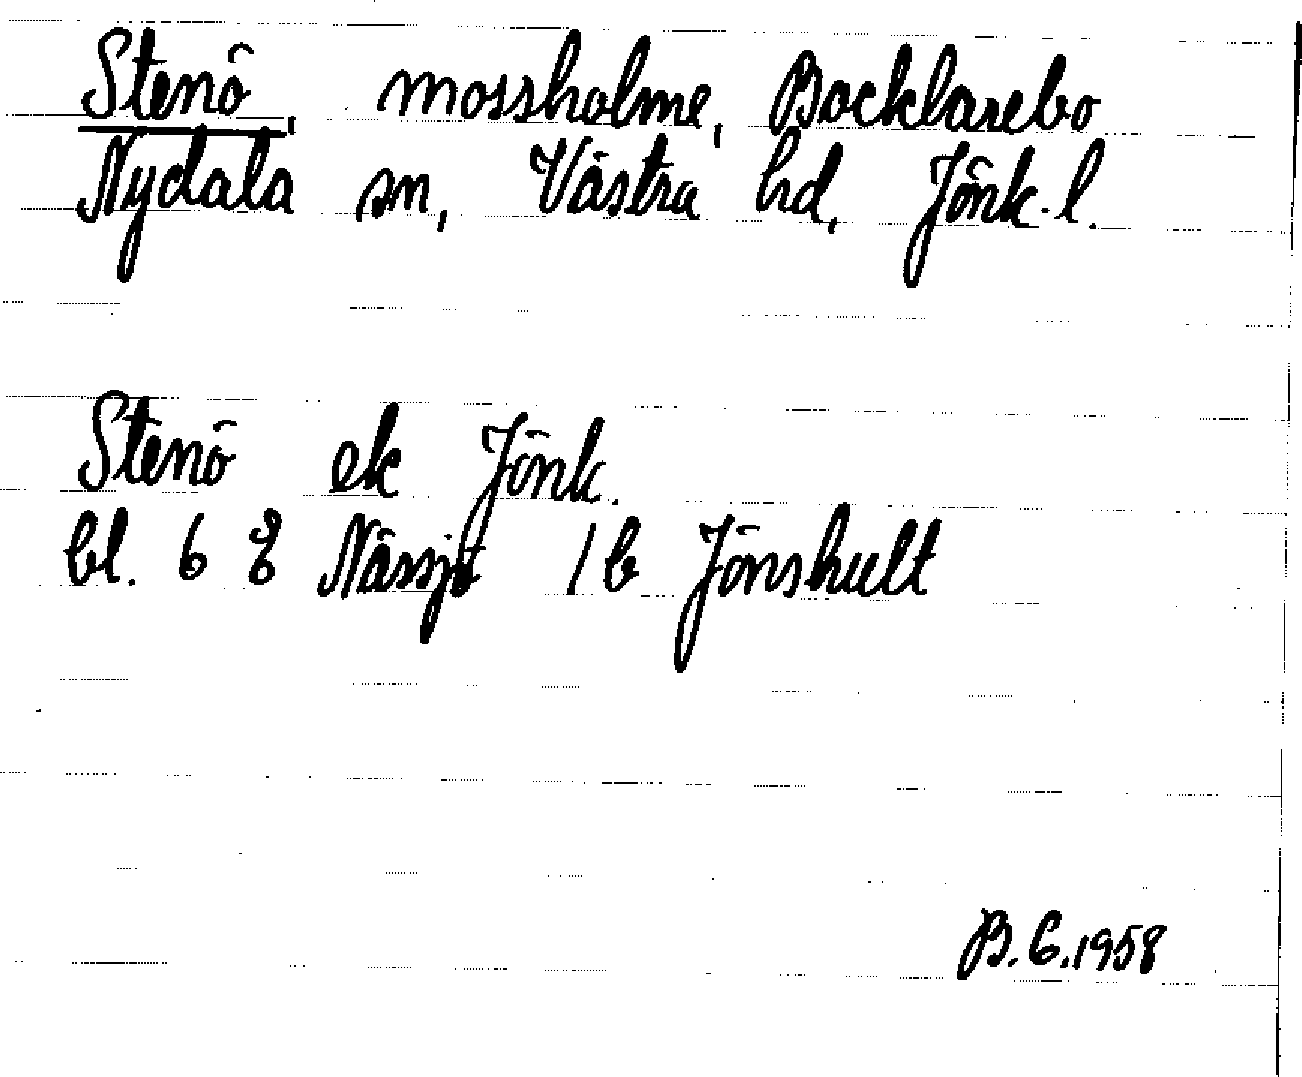 Stenö, mossholme, Bocklarebo
Nydala sn, Västra hd, Jönk. l.
Stenö ek Jönk.
bl. 6 8 Nässjö 1 b Jönshult
B.G.1958